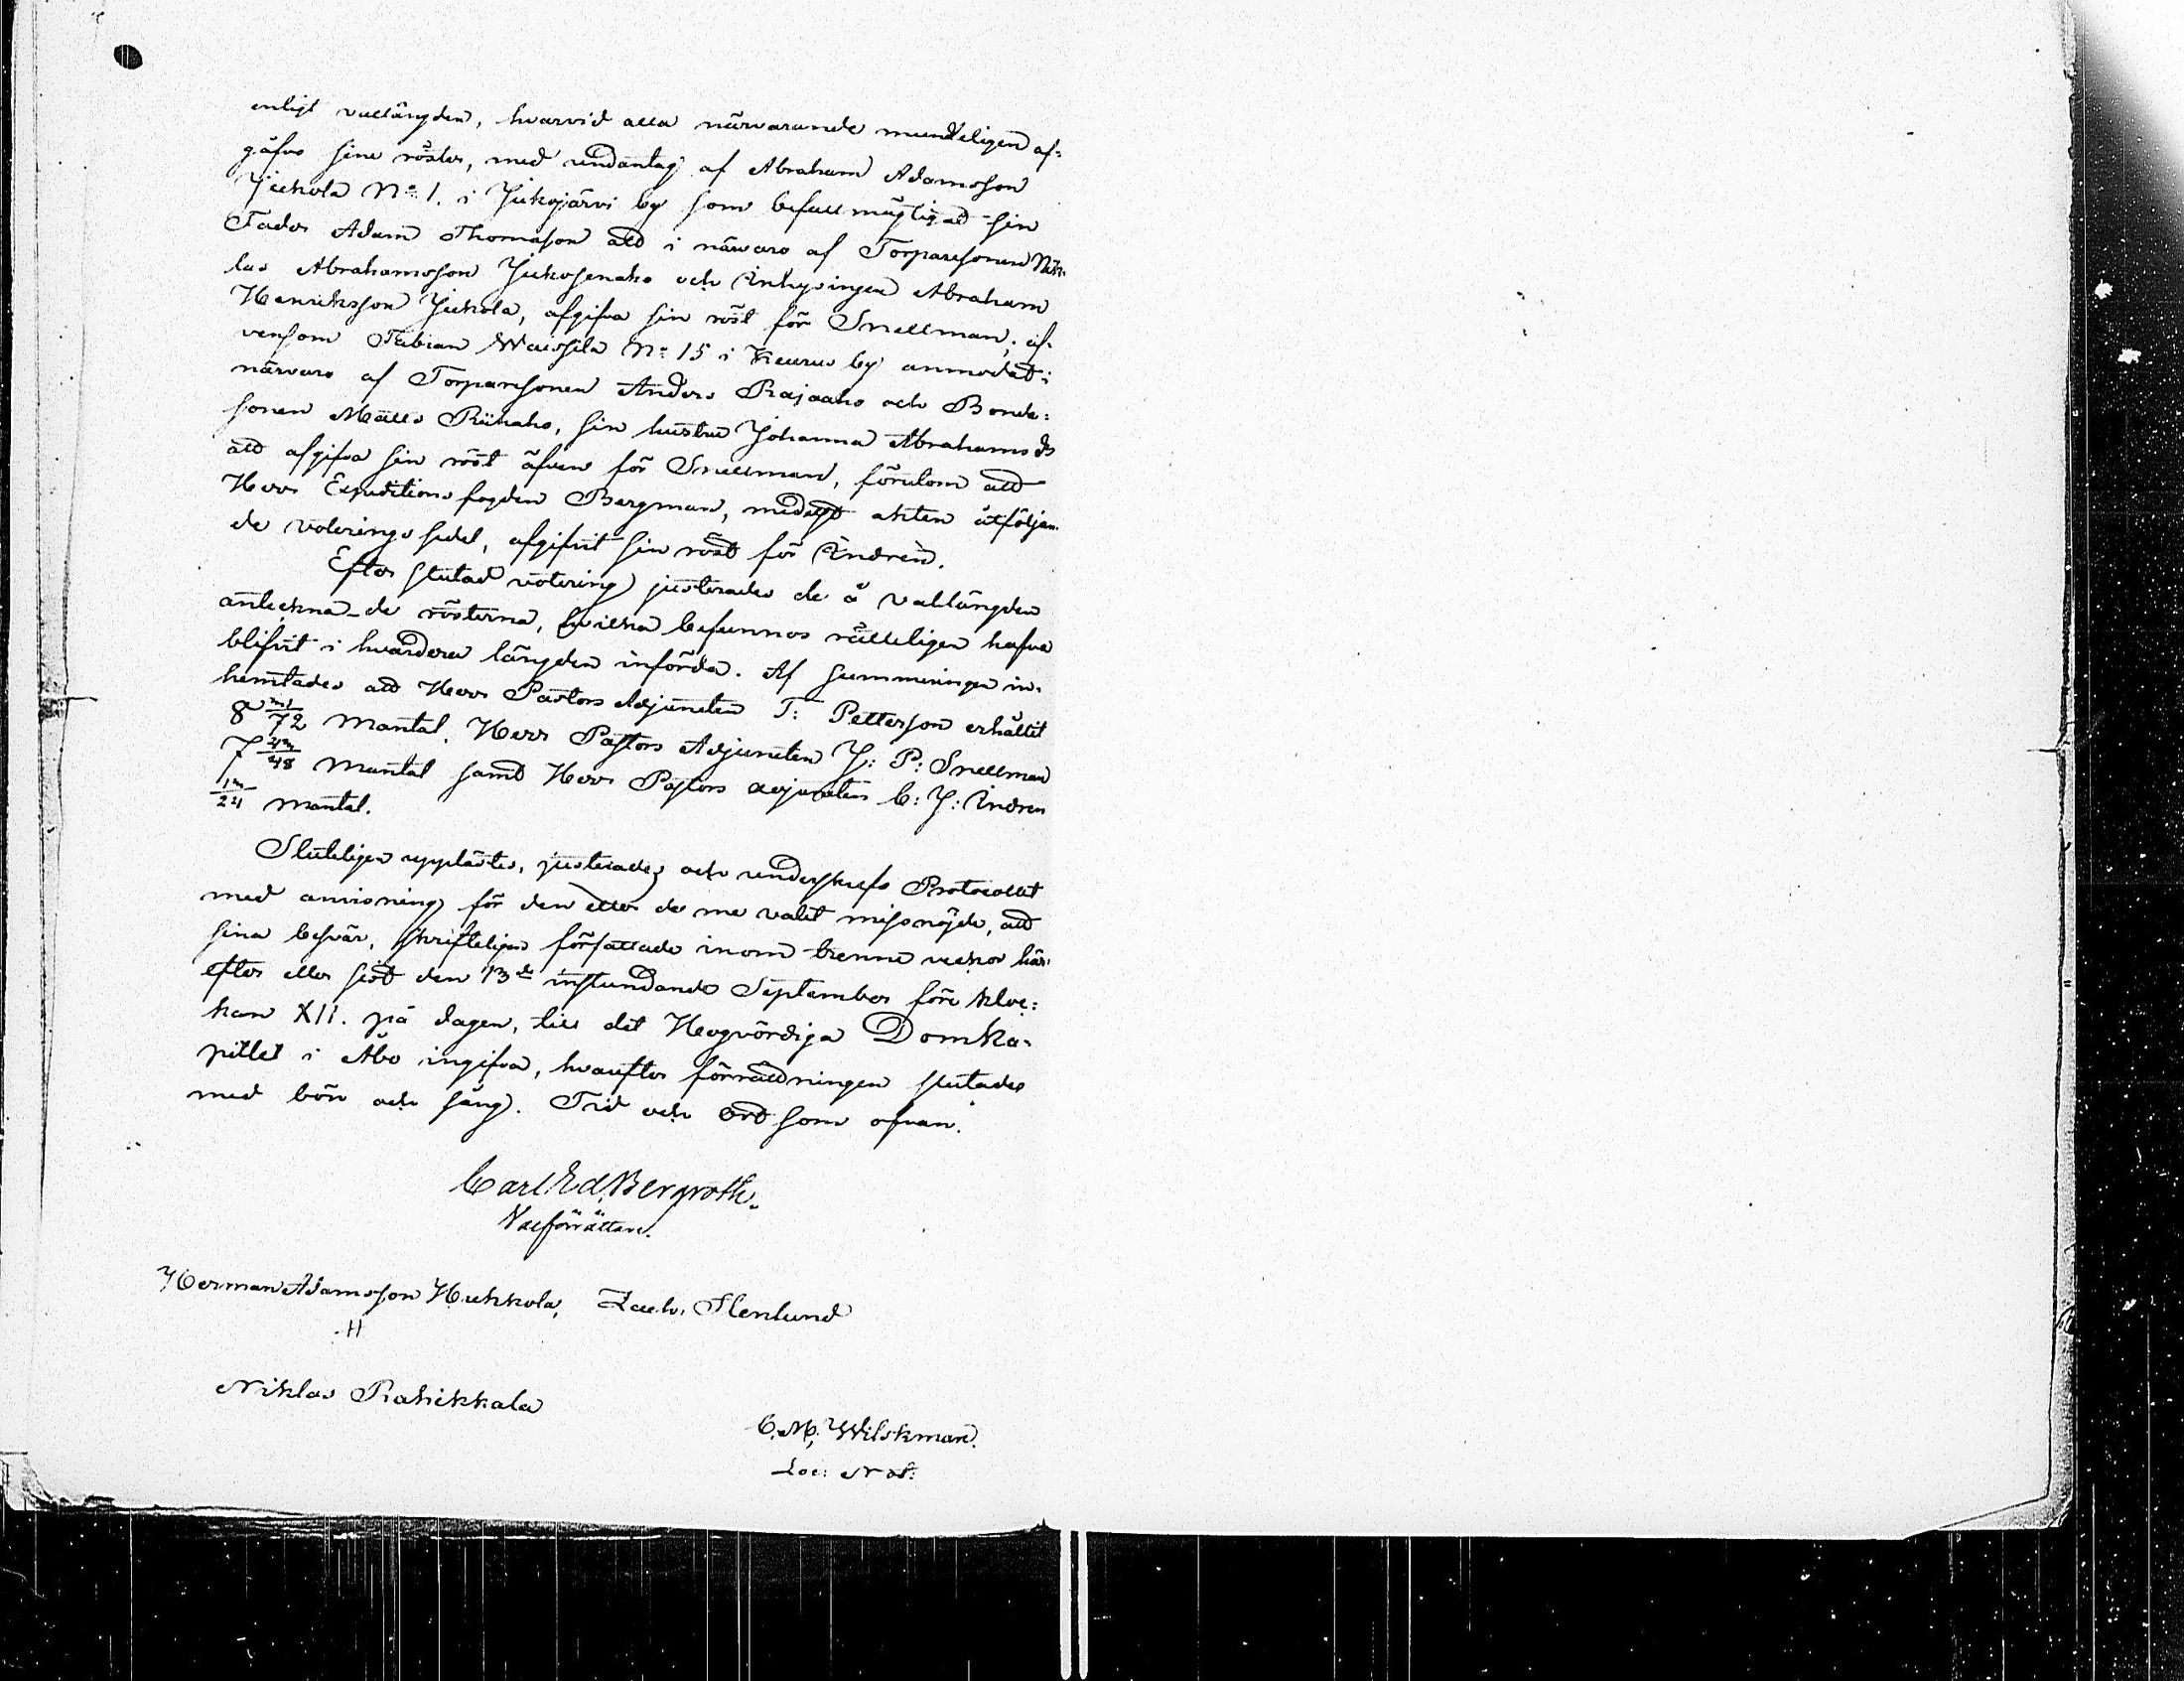 enligt vallängden, hvarvid alla närvarande mundteligen af=
gåfvo sine röster, med undantag af Abraham Adamsson
Jukola No 1. i Jukojärvi by som befullmägtigad sin
Fader Adam Thomasson att i närvaro af Torparesonen Nik-
las Abrahamsson Jukosenaho och Inhysingen Abraham
Henriksson Jukola, afgifva sin röst för Snellman; äf-
vensom Fabian Waissila No 15 i Keuru by anmodat i
närvaro af Torparesonen Anders Rajaaho och Bonde=
sonen Matts Riihaho, sin hustru Johanna Abrahamsdr
att afgifva sin röst äfven för Snellman, förutom att
Herr Expeditions fogden Bergman, medelst akten åtföljan-
de voterings sedel, afgifvit sin röst för Indrén.
Efter slutad votering justerades de å vallängden
antecknade rösterna, hvilka befunnos rätteligen hafva
blifvit i hvardera längden införda. Af summeringen in-
hemtades att Herr Pastors Adjuncten T: Petterson erhållit
8 /72 Mantal. Herr Pastors Adjuncten J: P: Snellman
7 /48 Mantal samt Herr Pastors adjuncten C: J: Indren
/24 Mantal.
Sluteligen upplästes, justerades och underskrefs Protocollet
med anvisning för den eller de me valet missnöjde, att
sina besvär, skrifteligen författade inom trenne veckor här-
efter eller sist den 13de instundande September före kloc=
kan XII. på dagen, till det Högvördiga Domka-
pitlet i Åbo ingifva, hvarefter förrättningen slutades
med bön och sång. Tid och ort som ofvan.
Carl Ed. Bergroth.
Valförrättare.
Herman Adamsson Huhkola, Zach. Stenlund
H
Niklas Rahikkala
C. M. Wilskman.
Loc: Not: